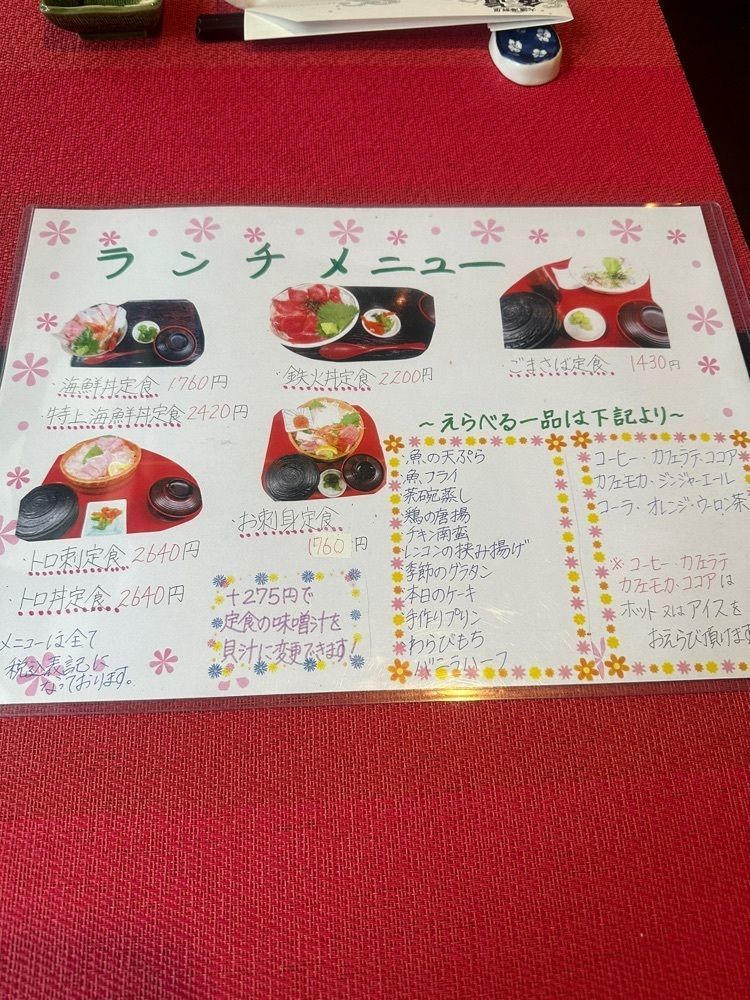 ランチメニュー
・海鮮丼定食 1760円
特上海鮮丼定食 2420円
・鉄火丼定食 2200円
・ごまさば定食 1430円
・トロ刺定食 2640円
・トロ丼定食 2640円
・お刺身定食
1760円
メニューは全て
税込表記に
なっております。
+275円で
定食の味噌汁を
貝汁に変更できます!
~えらべる一品は下記より~
・魚の天ぷら
・魚フライ
・茶碗蒸し
・鶏の唐揚
・チキン南蛮
・レンコンの挟み揚げ
・季節のグラタン
・本日のケーキ
・手作りプリン
・わらびもち
コーヒー・カフェラテ・ココア
カフェモカ・ジンジャーエール
コーラ・オレンジ・ウーロン茶
※コーヒー・カフェラテ
カフェモカ・ココアは
ホット又はアイスを
おえらび頂けます